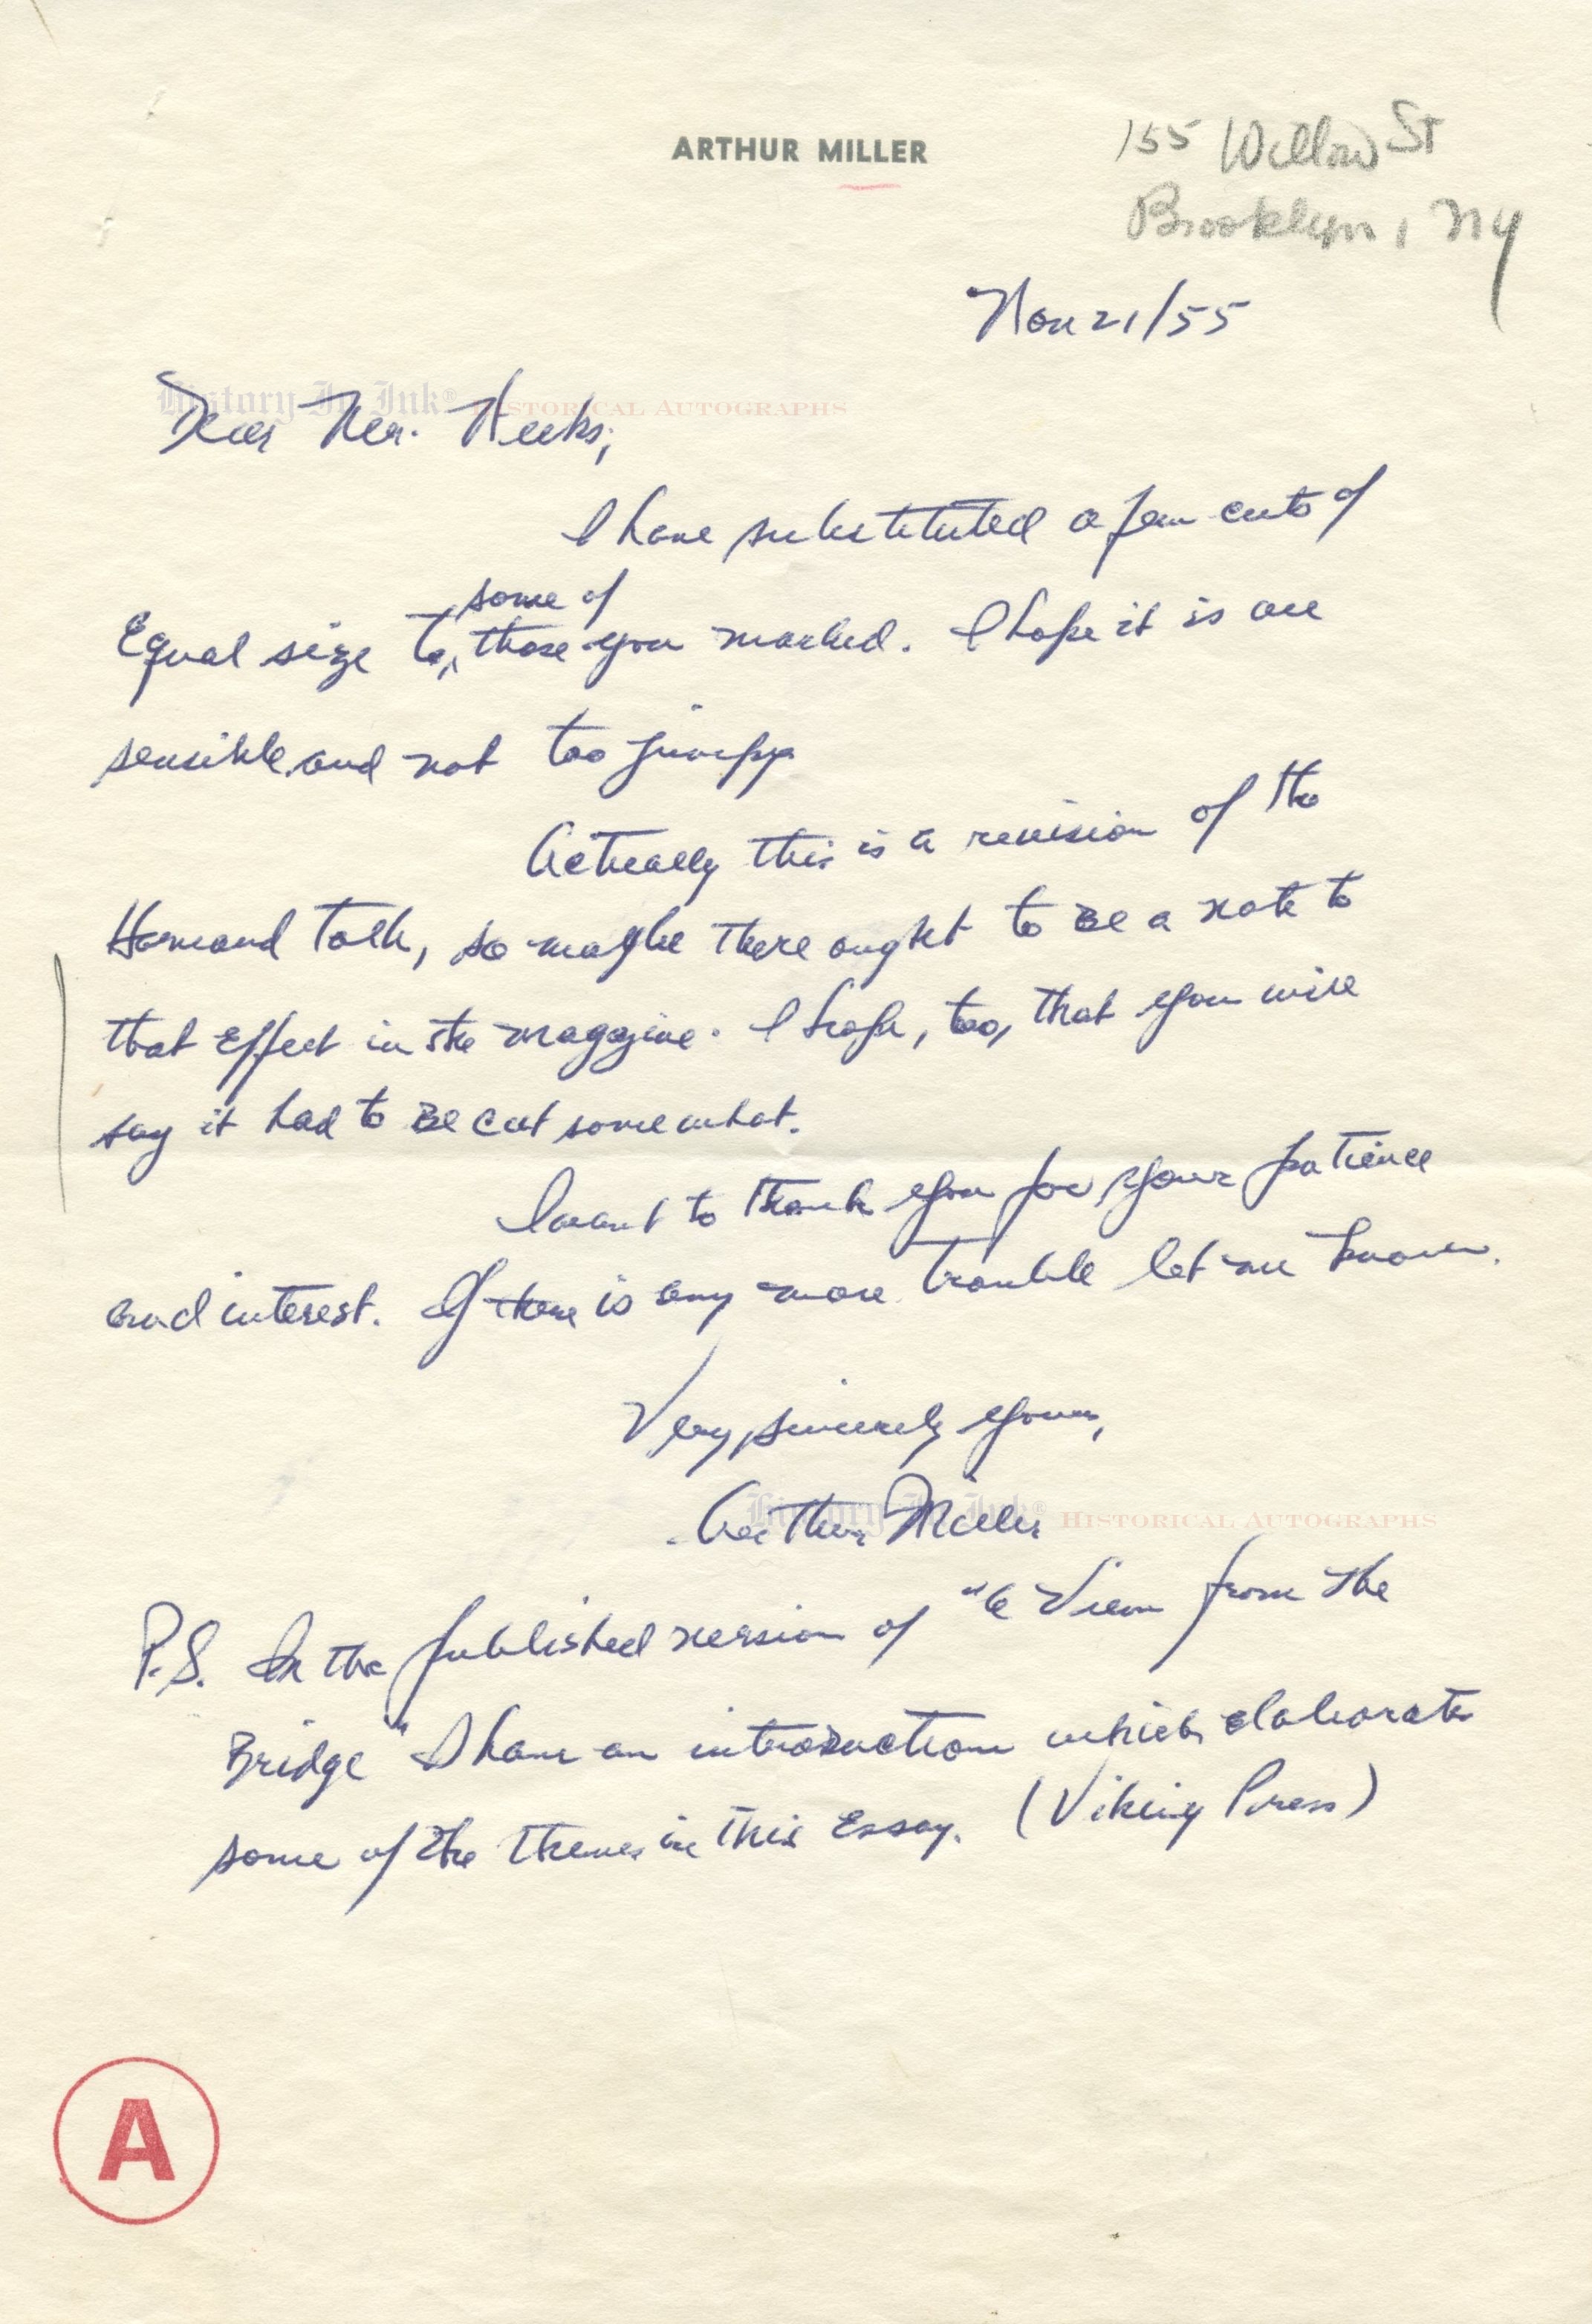 ARTHUR MILLER
155 Willow St
Brooklyn, NY
Nov 21/55
History In Ink® HISTORICAL AUTOGRAPHS
Dear Mr. Weeks,
I have substituted a few cuts of
some of
Equal size to those you marked. I hope it is all
sensible and not too jumpy
Actually this is a revision of the
Harvard talk, so maybe there ought to be a note to
that effect in the magazine. I hope, too, that you will
say it had to be cut somewhat.
I want to thank you for your patience
and interest. If there is any more trouble let me know.
Very sincerely yours,
Arthur Miller
History In Ink® HISTORICAL AUTOGRAPHS
P.S. In the published version of "A View from the
Bridge" I have an introduction which elaborates
some of the themes in this Essay. (Viking Press)
A